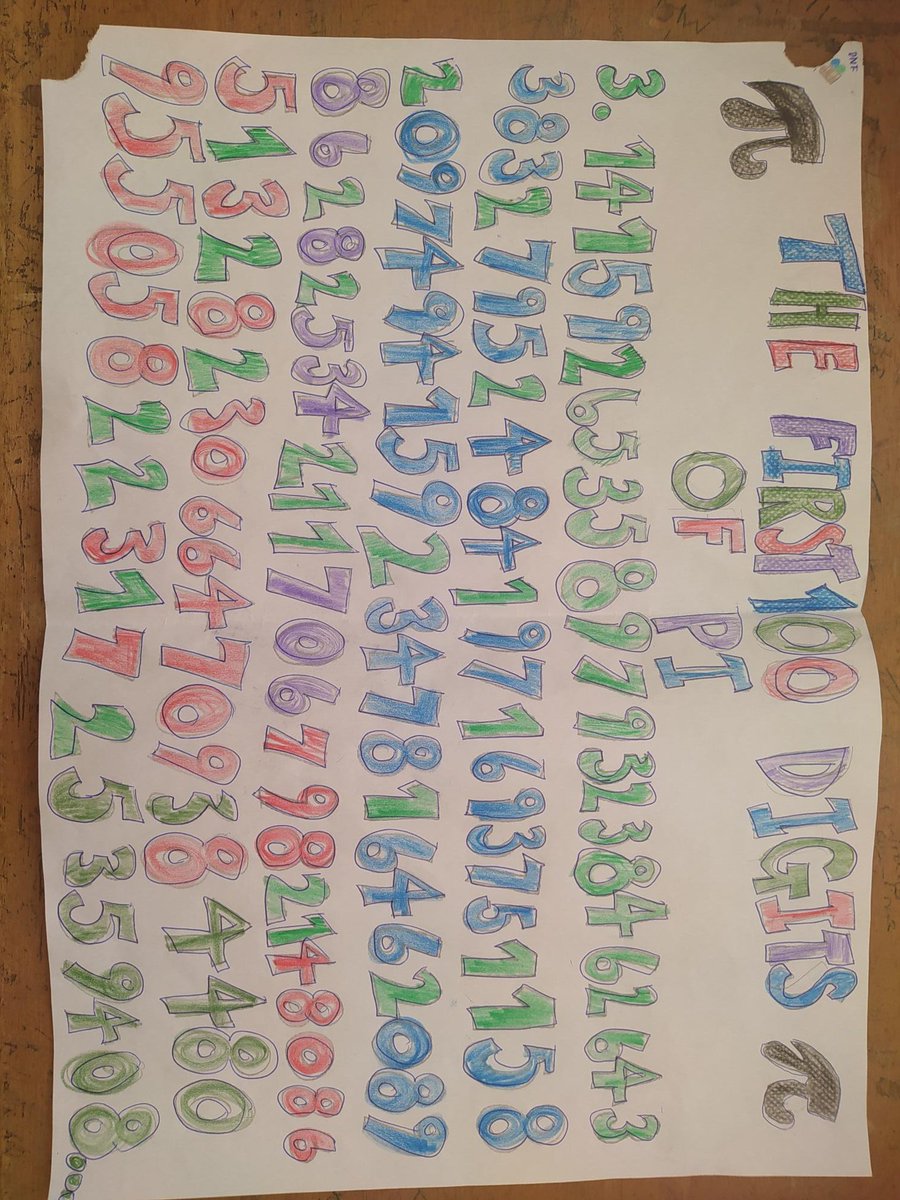 π THE FIRST 100 DIGITS π
OF PI
3.141592653589793238462643
383279524841971693751158
20974941592347816462089
862825342117067982148086
51328230664709384480
9550582231725359408...